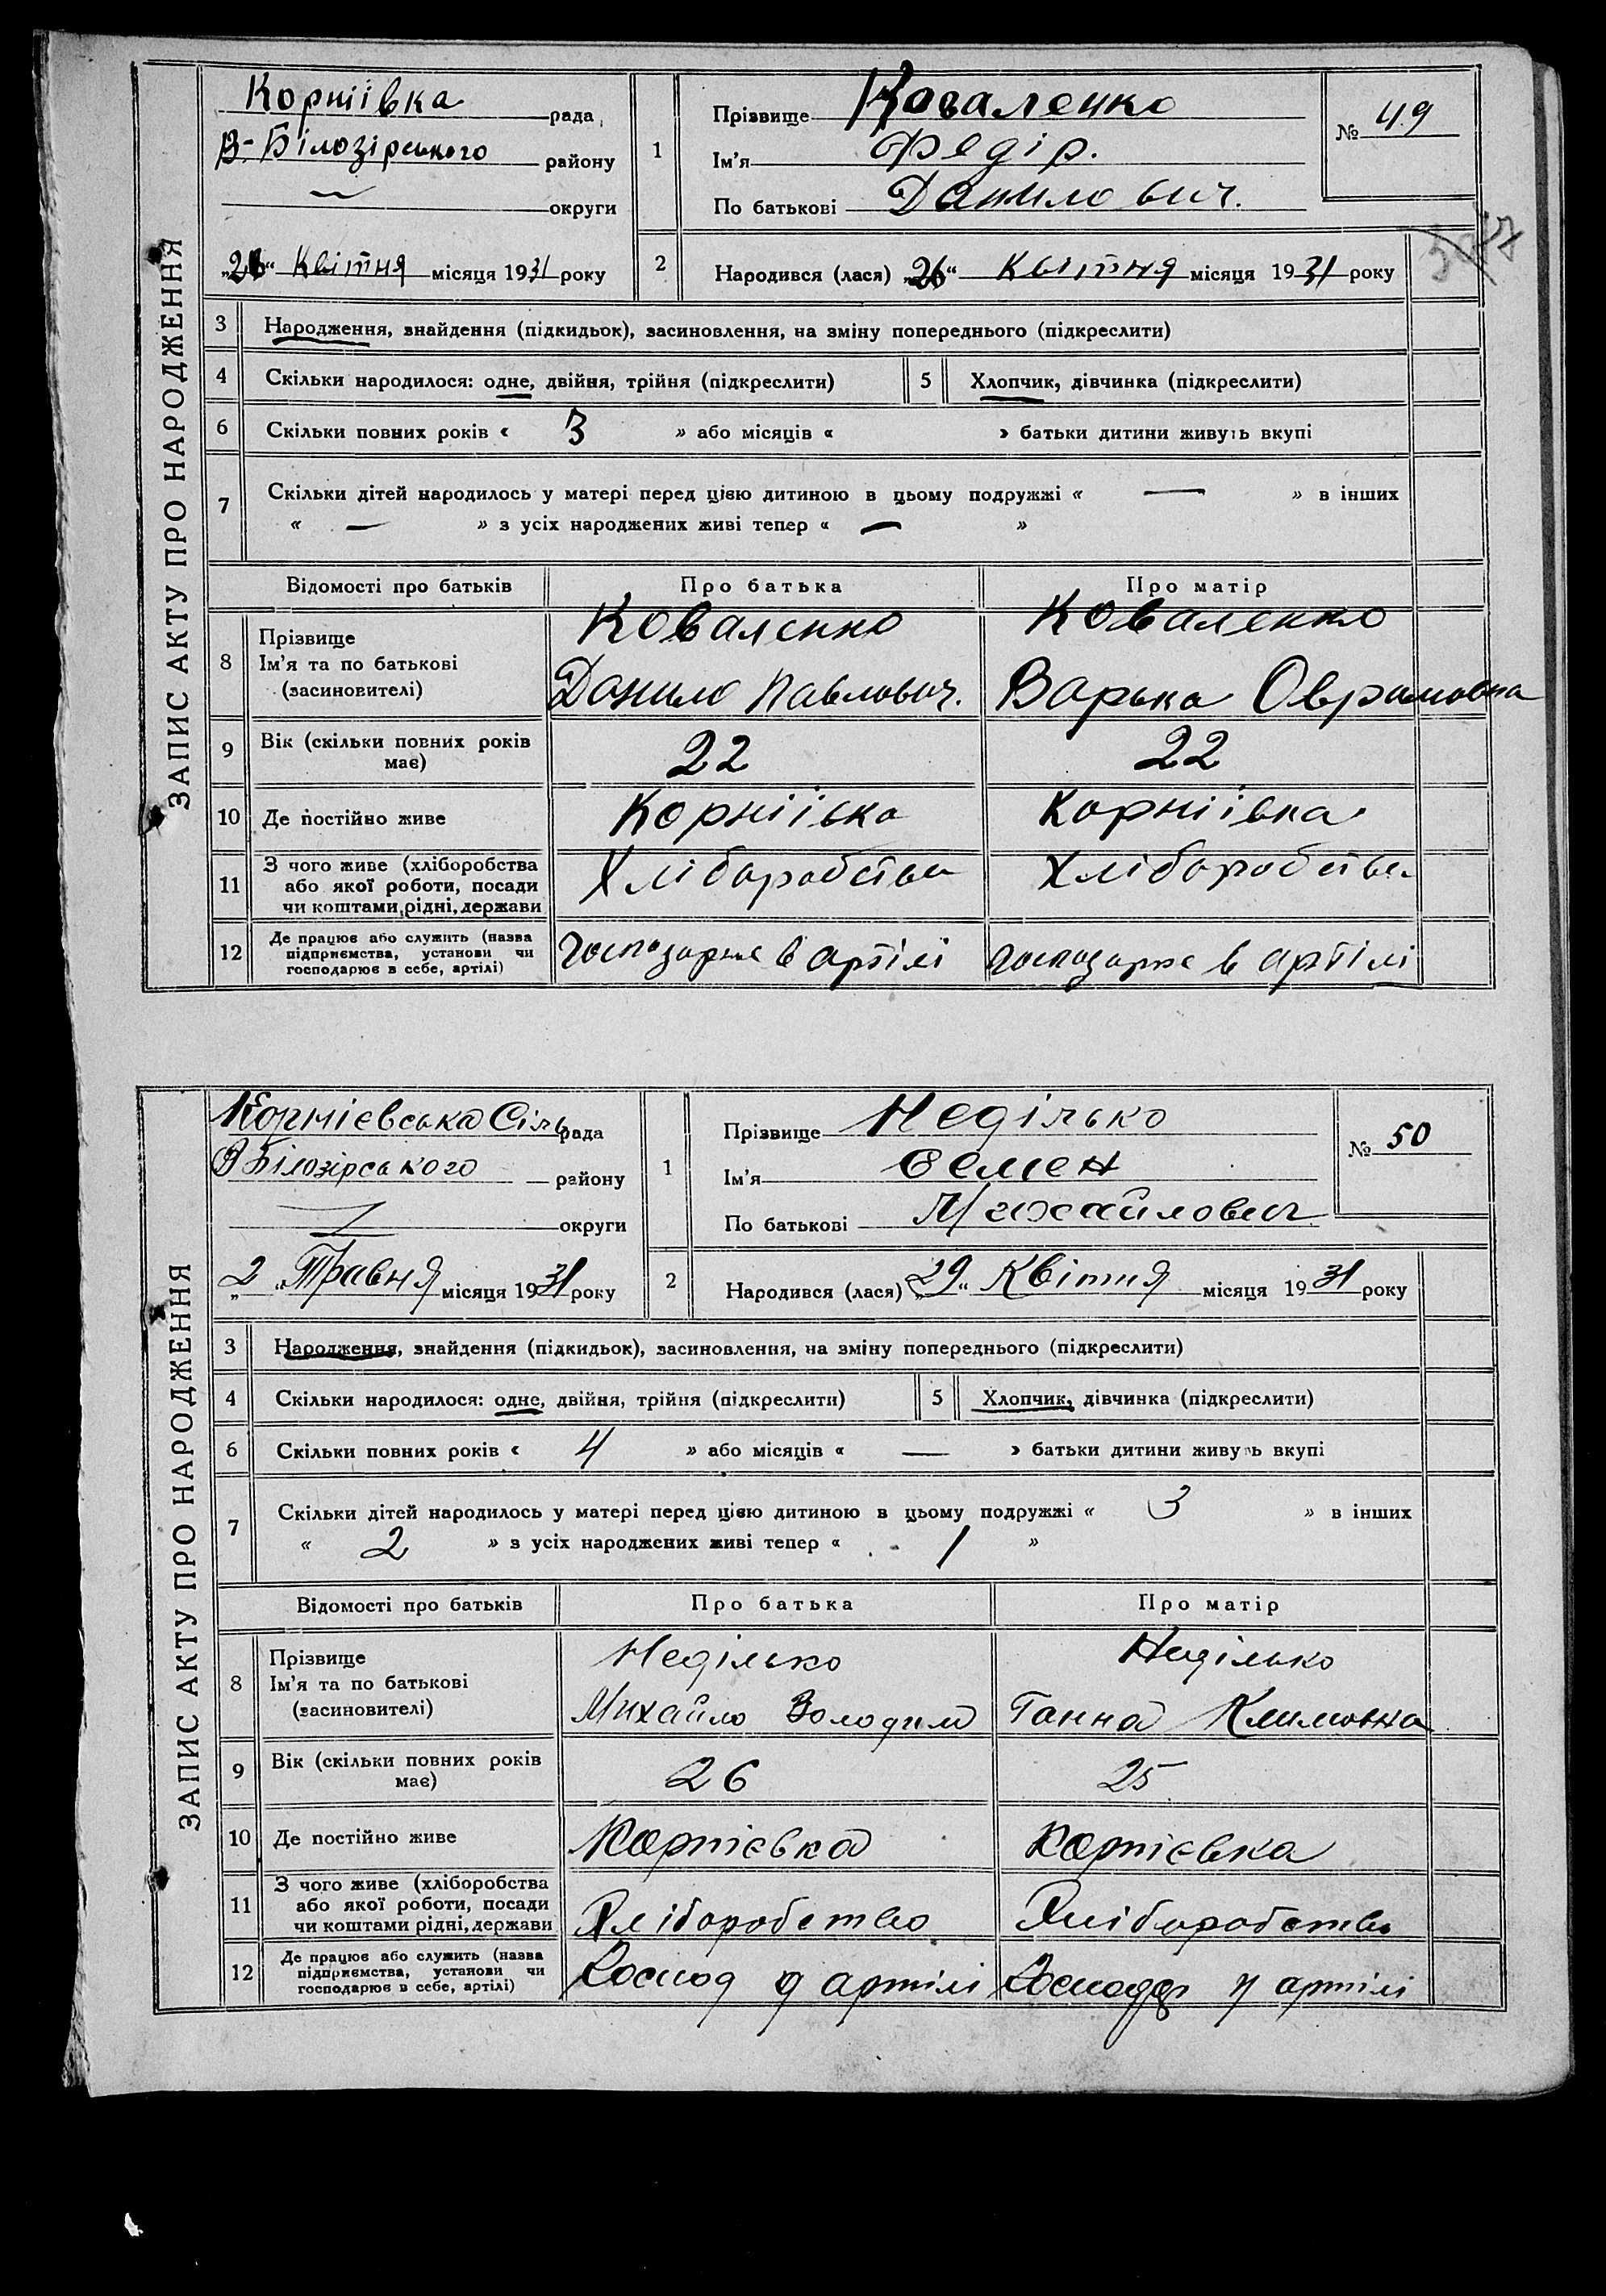 ЗАПИС АКТУ ПРО НАРОДЖЕННЯ
Корніївка рада
В-Білозірського району
— округи
„26“ Квітня місяця 1931 року
1
Прізвище Коваленко
Ім'я Федір.
По батькові Данилович.
№ 49
2
Народився (лася) „26“ Квітня місяця 1931 року
3 Народження, знайдення (підкидьок), засиновлення, на зміну попереднього (підкреслити)
4 Скільки народилося: одне, двійня, трійня (підкреслити) 5 Хлопчик, дівчинка (підкреслити)
6 Скільки повних років « 3 » або місяців « » батьки дитини живуть вкупі
7 Скільки дітей народилось у матері перед цією дитиною в цьому подружжі « — » в інших
« — » з усіх народжених живі тепер « — »
Відомості про батьків Про батька Про матір
8 Прізвище Коваленко Коваленко
Ім'я та по батькові
(засновителі) Данило Павлович. Варька Оврамовна
9 Вік (скільки повних років має) 22 22
10 Де постійно живе Корніївка Корніївка
11 З чого живе (хліборобства
або якої роботи, посади
чи коштами рідні, держави Хліборобства Хліборобства
12 Де працює або служить (назва
підприємства, установи чи
господарює в себе, артілі) в артілі в артілі
ЗАПИС АКТУ ПРО НАРОДЖЕННЯ
Корнієвська Сіль рада
В Білозірського району
— округи
„2“ Травня місяця 1931 року
1
Прізвище Неділько
Ім'я Семен
По батькові Михайлович
№ 50
2
Народився (лася) „29“ Квітня місяця 1931 року
3 Народження, знайдення (підкидьок), засиновлення, на зміну попереднього (підкреслити)
4 Скільки народилося: одне, двійня, трійня (підкреслити) 5 Хлопчик, дівчинка (підкреслити)
6 Скільки повних років « 4 » або місяців « — » батьки дитини живуть вкупі
7 Скільки дітей народилось у матері перед цією дитиною в цьому подружжі « 3 » в інших
« 2 » з усіх народжених живі тепер « 1 »
Відомості про батьків Про батька Про матір
8 Прізвище Неділько Неділько
Ім'я та по батькові
(засиновителі) Михайло Володим Ганна Климовна
9 Вік (скільки повних років має) 26 25
10 Де постійно живе Корнієвка Корнієвка
11 З чого живе (хліборобства
або якої роботи, посади
чи коштами рідні, держави Хліборобство Хліборобство
12 Де працює або служить (назва
підприємства, установи чи
господарює в себе, артілі) Господ у артілі у артілі